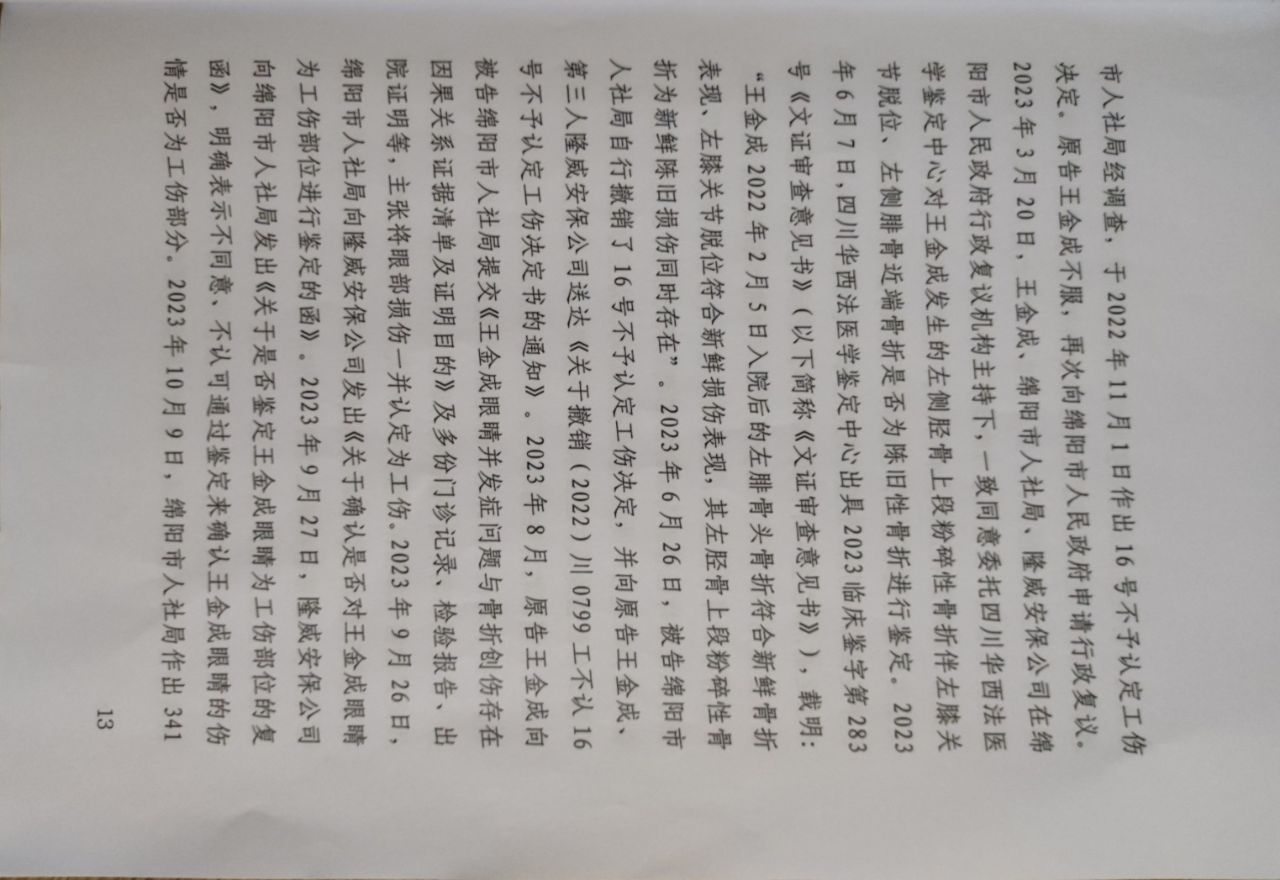 市人社局经调查，于 2022 年 11 月 1 日作出 16 号不予认定工伤
决定。原告王金成不服，再次向绵阳市人民政府申请行政复议。
2023 年 3 月 20 日，王金成、绵阳市人社局、隆威安保公司在绵
阳市人民政府行政复议机构主持下，一致同意委托四川华西法医
学鉴定中心对王金成发生的左侧胫骨上段粉碎性骨折伴左膝关
节脱位、左侧腓骨近端骨折是否为陈旧性骨折进行鉴定。2023
年 6 月 7 日，四川华西法医学鉴定中心出具 2023 临床鉴字第 283
号《文证审查意见书》（以下简称《文证审查意见书》），载明：
“王金成 2022 年 2 月 5 日入院后的左腓骨头骨折符合新鲜骨折
表现、左膝关节脱位符合新鲜损伤表现，其左胫骨上段粉碎性骨
折为新鲜陈旧损伤同时存在”。2023 年 6 月 26 日，被告绵阳市
人社局自行撤销了 16 号不予认定工伤决定，并向原告王金成、
第三人隆威安保公司送达《关于撤销（2022）川 0799 工不认 16
号不予认定工伤决定书的通知》。2023 年 8 月，原告王金成向
被告绵阳市人社局提交《王金成眼睛并发症问题与骨折创伤存在
因果关系证据清单及证明目的》及多份门诊记录、检验报告、出
院证明等，主张将眼部损伤一并认定为工伤。2023 年 9 月 26 日，
绵阳市人社局向隆威安保公司发出《关于确认是否对王金成眼睛
为工伤部位进行鉴定的函》。2023 年 9 月 27 日，隆威安保公司
向绵阳市人社局发出《关于是否鉴定王金成眼睛为工伤部位的复
函》，明确表示不同意、不认可通过鉴定来确认王金成眼睛的伤
情是否为工伤部分。2023 年 10 月 9 日，绵阳市人社局作出 341
13